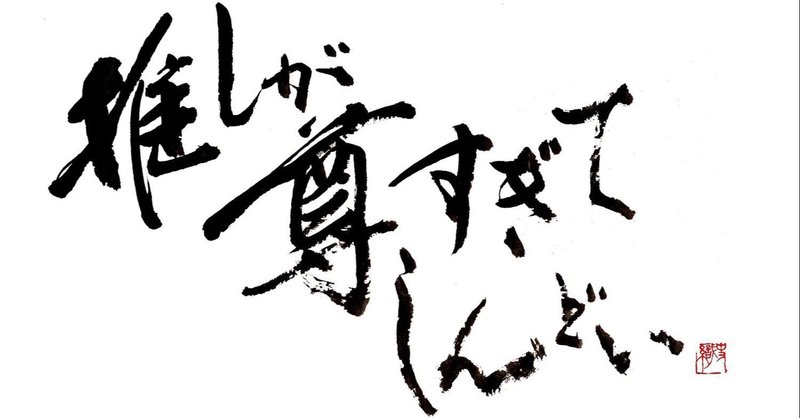 推しが
尊すぎて
しんどい